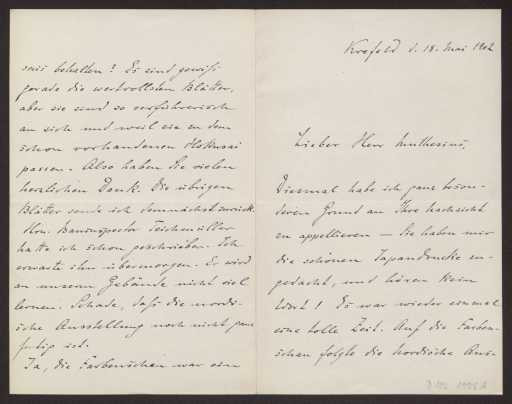 Krefeld d. 18. Mai 1902
Lieber Herr Muthesius,
Diesmal habe ich ganz beson-
deren Grund an Ihre Nachsicht
zu appellieren – Sie haben mir
die schönen Japandrucke zu-
gedacht, und hören kein
Wort! Es war wieder einmal
eine tolle Zeit. Auf die Farben-
schau folgte die Nordische Aus-
behalten? Es sind gewiß
gerade die wertvollsten Blätter,
aber sie sind so verführerisch
an sich und weil sie zu dem
schon vorhandenen Hokusai
passen. Also haben Sie vielen
herzlichen Dank. Die übrigen
Blätter sende ich demnächst zurück.
Hrn. Bauinspector Teichmüller
hatte ich schon geschrieben. Ich
erwarte ihn übermorgen. Er wird
an unserm Gebäude nicht viel
lernen. Schade, daß die nordi-
sche Ausstellung noch nicht ganz
fertig ist.
Ja, die Farbenschau war ein